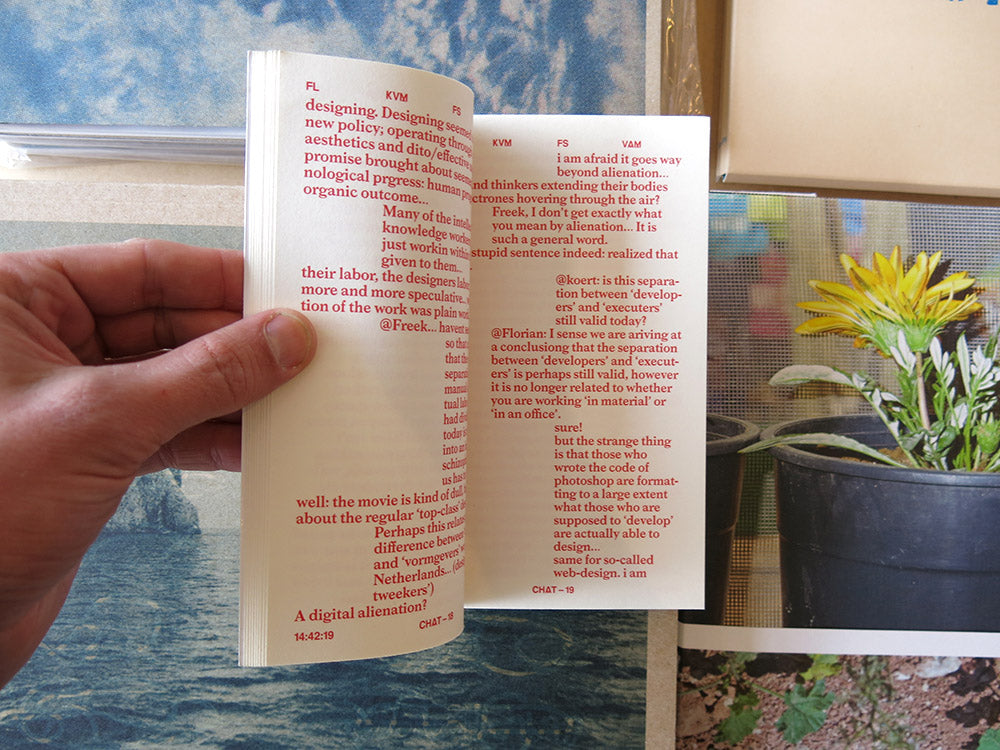 FL KVM FS
designing. Designing seemed
new policy; operating through
aesthetics and dito/effective
promise brought about seem
nological prgress: human
organic outcome...
Many of the intelle
knowledge worker
just workin within
given to them...
their labor, the designers labo
more and more speculative...
tion of the work was plain wo
@Freek... havent
so that
that the
separa
manua
tual lab
had di
today i
into an
schizop
us has
well: the movie is kind of dull,
about the regular 'top-class'
Perhaps this relat
difference between
and 'vormgevers'
Netherlands...
tweekers')
A digital alienation?
14:42:19 CHAT – 18
KVM FS VAM
i am afraid it goes way
beyond alienation...
nd thinkers extending their bodies
ctrones hovering through the air?
Freek, I don't get exactly what
you mean by alienation... It is
such a general word.
stupid sentence indeed: realized that
@koert: is this separa-
tion between 'develop-
ers' and 'executers'
still valid today?
@Florian: I sense we are ariving at
a conclusiong that the separation
between 'developers' and 'execut-
ers' is perhaps still valid, however
it is no longer related to whether
you are working 'in material' or
'in an office'.
sure!
but the strange thing
is that those who
wrote the code of
photoshop are format-
ting to a large extent
what those who are
supposed to 'develop'
are actually able to
design...
same for so-called
web-design. i am
CHAT – 19